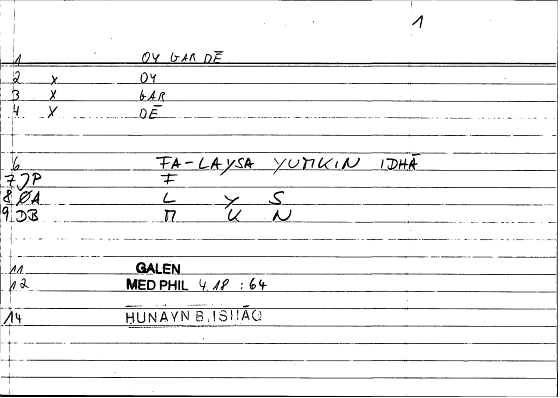 1
1 OY GAR DĒ
2 X OY
3 X GAR
4 X DĒ
6 FA-LAYSA YUMKIN IDHĀ
7 JP F
8 ØA L Y S
9 DB M K N
11 GALEN
12 MED PHIL 4.18 : 64
14 HUNAYN B. ISHĀQ